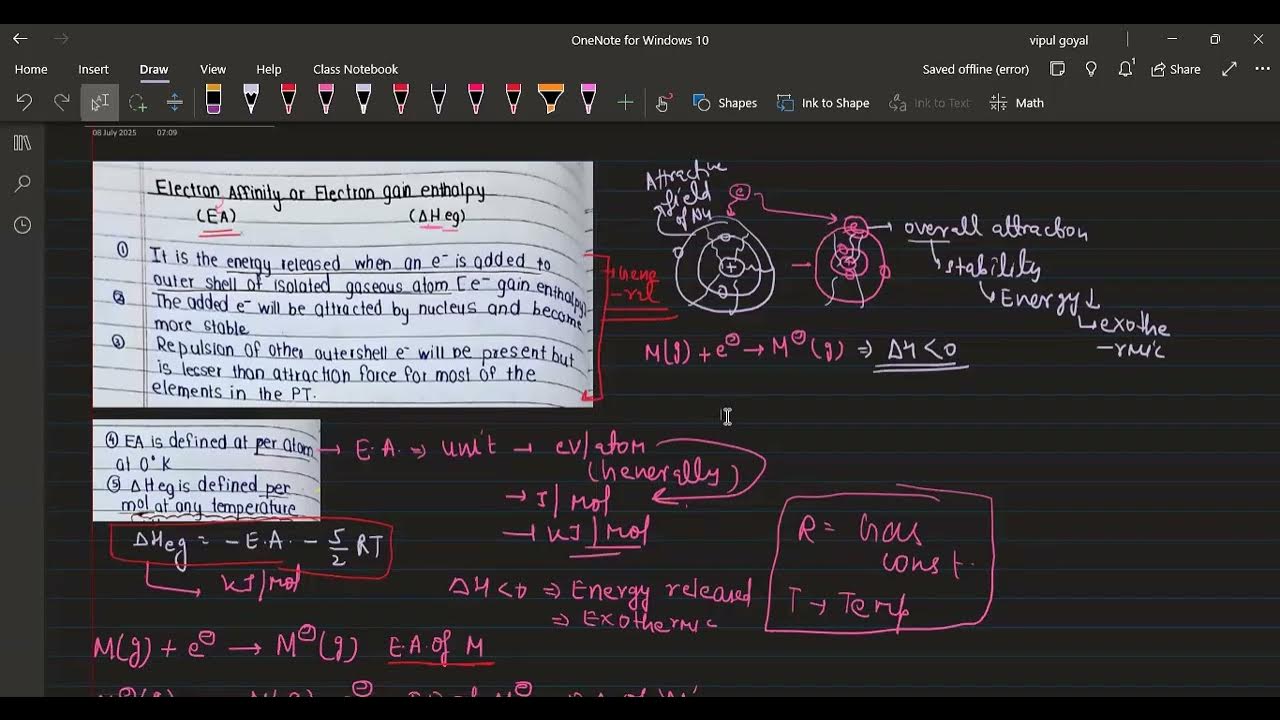 OneNote for Windows 10
vipul goyal
Home Insert Draw View Help Class Notebook
Saved offline (error)
Share
Shapes
Ink to Shape
Ink to Text
Math
08 July 2025 07:09
Electron Affinity or Electron gain enthalpy
(EA) (ΔHeg)
① It is the energy released when an e⁻ is added to
outer shell of isolated gaseous atom [e⁻ gain enthalpy]
② The added e⁻ will be attracted by nucleus and become
more stable
③ Repulsion of other outershell e⁻ will be present but
is lesser than attraction force for most of the
elements in the PT.
Attractive
field
of Nu
e
overall attraction
stability
Energy↓
exothe
-rmic
M(g) + e⊖ → M⊖(g) ⇒ ΔH<0
④ EA is defined at per atom
at 0°K
⑤ ΔHeg is defined per
mol at any temperature
→ E.A. ⇒ unit → eV/atom
(Generally)
→ J/mol
→ kJ/mol
ΔHeg = -E.A. - 5/2 RT
kJ/mol
ΔH<0 ⇒ Energy released
⇒ Exothermic
R = Gas
const.
T → Temp
M(g) + e⊖ → M⊖(g) E.A. of M